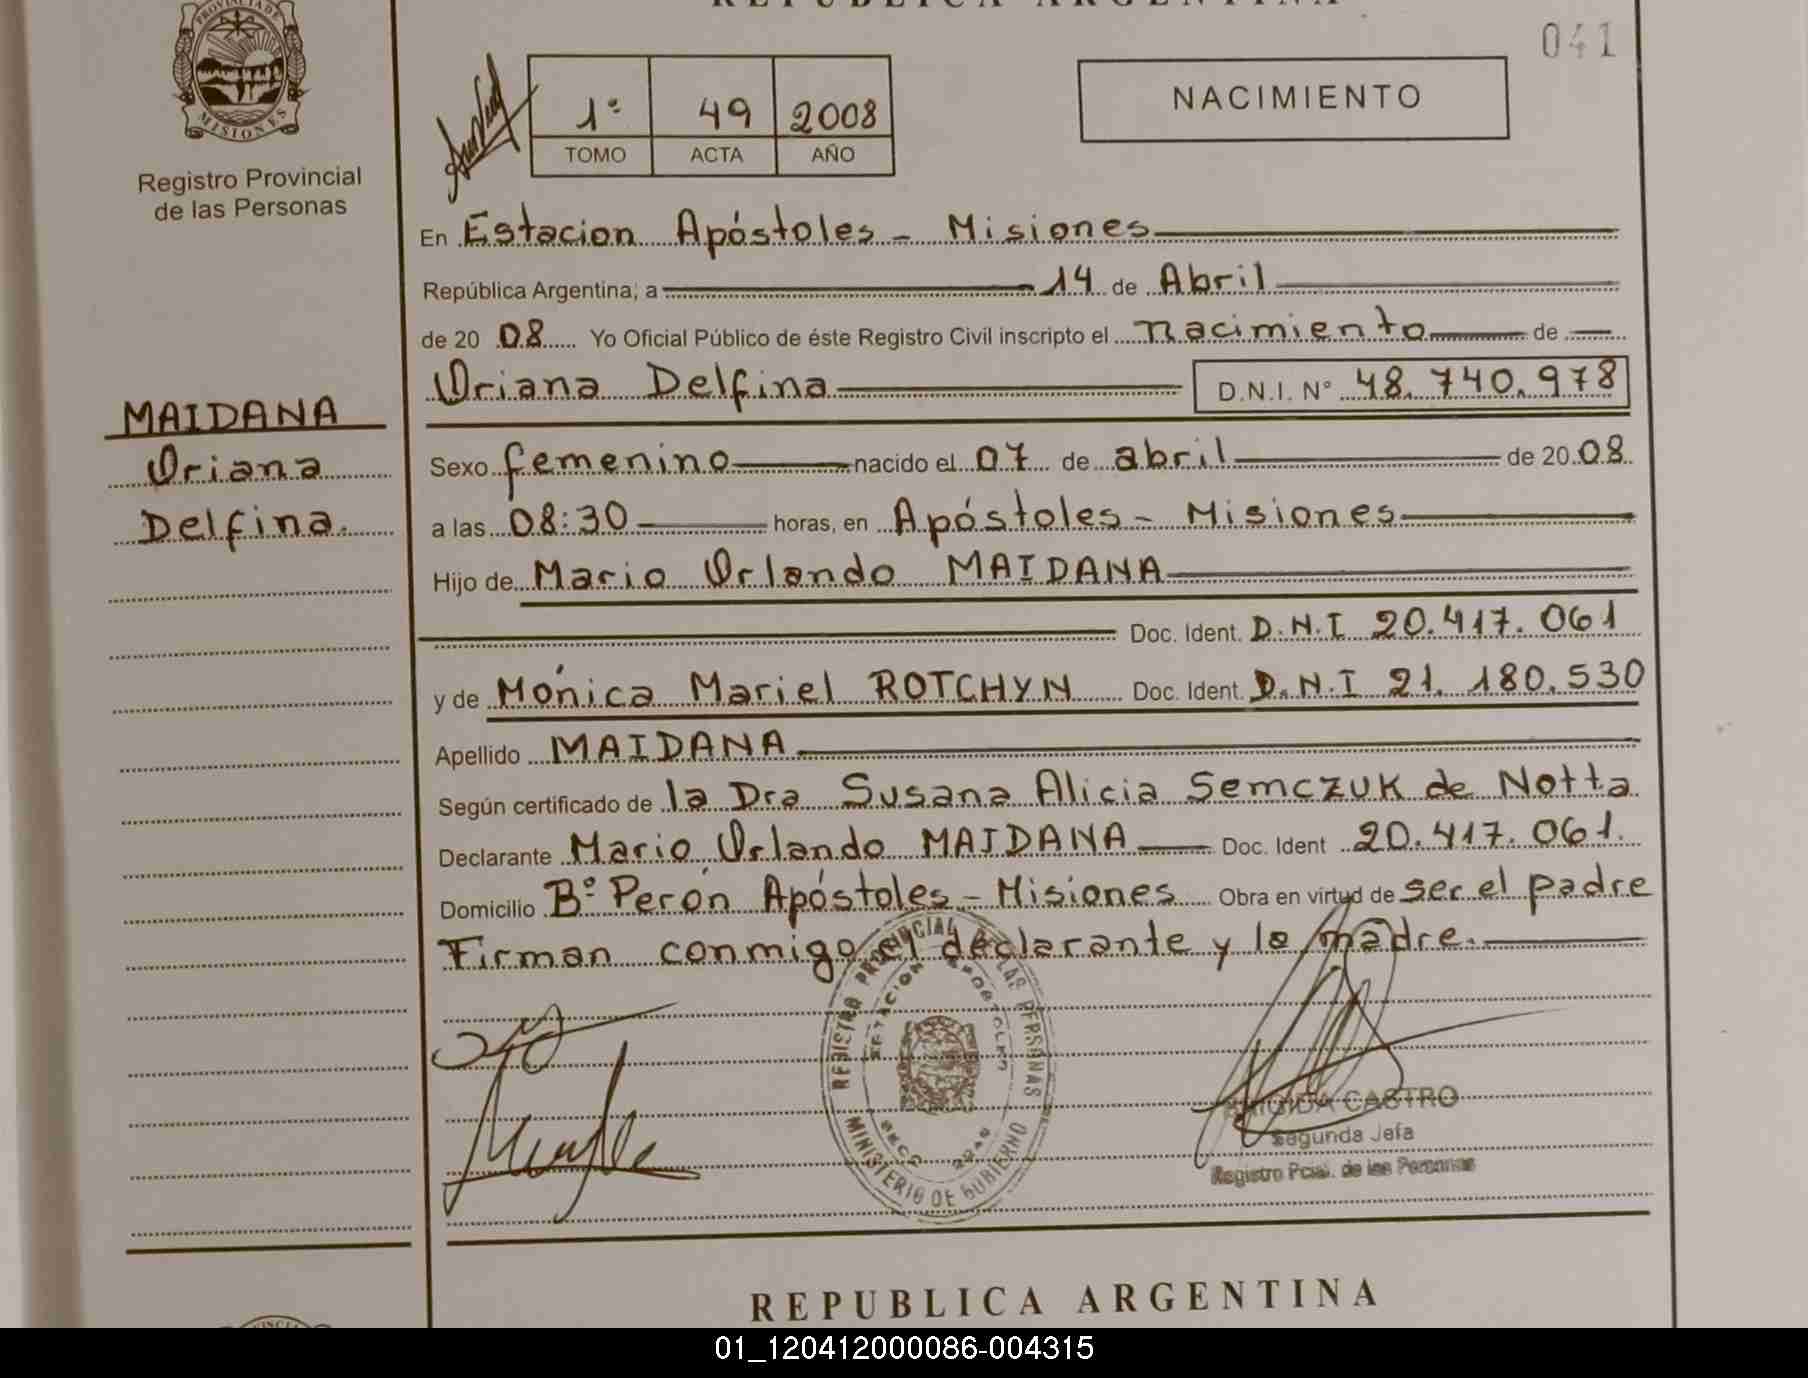 REPUBLICA ARGENTINA
041
PROVINCIA DE
MISIONES
Registro Provincial
de las Personas
1º 49 2008
TOMO ACTA AÑO
NACIMIENTO
En Estacion Apóstoles - Misiones
República Argentina, a 14 de Abril
de 20 08 Yo Oficial Público de éste Registro Civil inscripto el nacimiento de
Oriana Delfina D.N.I. Nº 48.740.978
MAIDANA
Oriana
Delfina.
Sexo femenino nacido el 07 de abril de 20 08
a las 08:30 horas, en Apóstoles - Misiones
Hijo de Mario Orlando MAIDANA
Doc. Ident. D.N.I 20.417.061
y de Mónica Mariel ROTCHYN Doc. Ident. D.N.I 21.180.530
Apellido MAIDANA
Según certificado de la Dra Susana Alicia Semczuk de Notta
Declarante Mario Orlando MAIDANA Doc. Ident 20.417.061.
Domicilio Bº Perón Apóstoles - Misiones Obra en virtud de ser el padre
Firman conmigo el declarante y la madre.
REGISTRO PROVINCIAL DE LAS PERSONAS
ESTACION APOSTOLES
MINISTERIO DE GOBIERNO
CASTRO
Segunda Jefa
Registro Pcial. de las Personas
REPUBLICA ARGENTINA
01_120412000086-004315